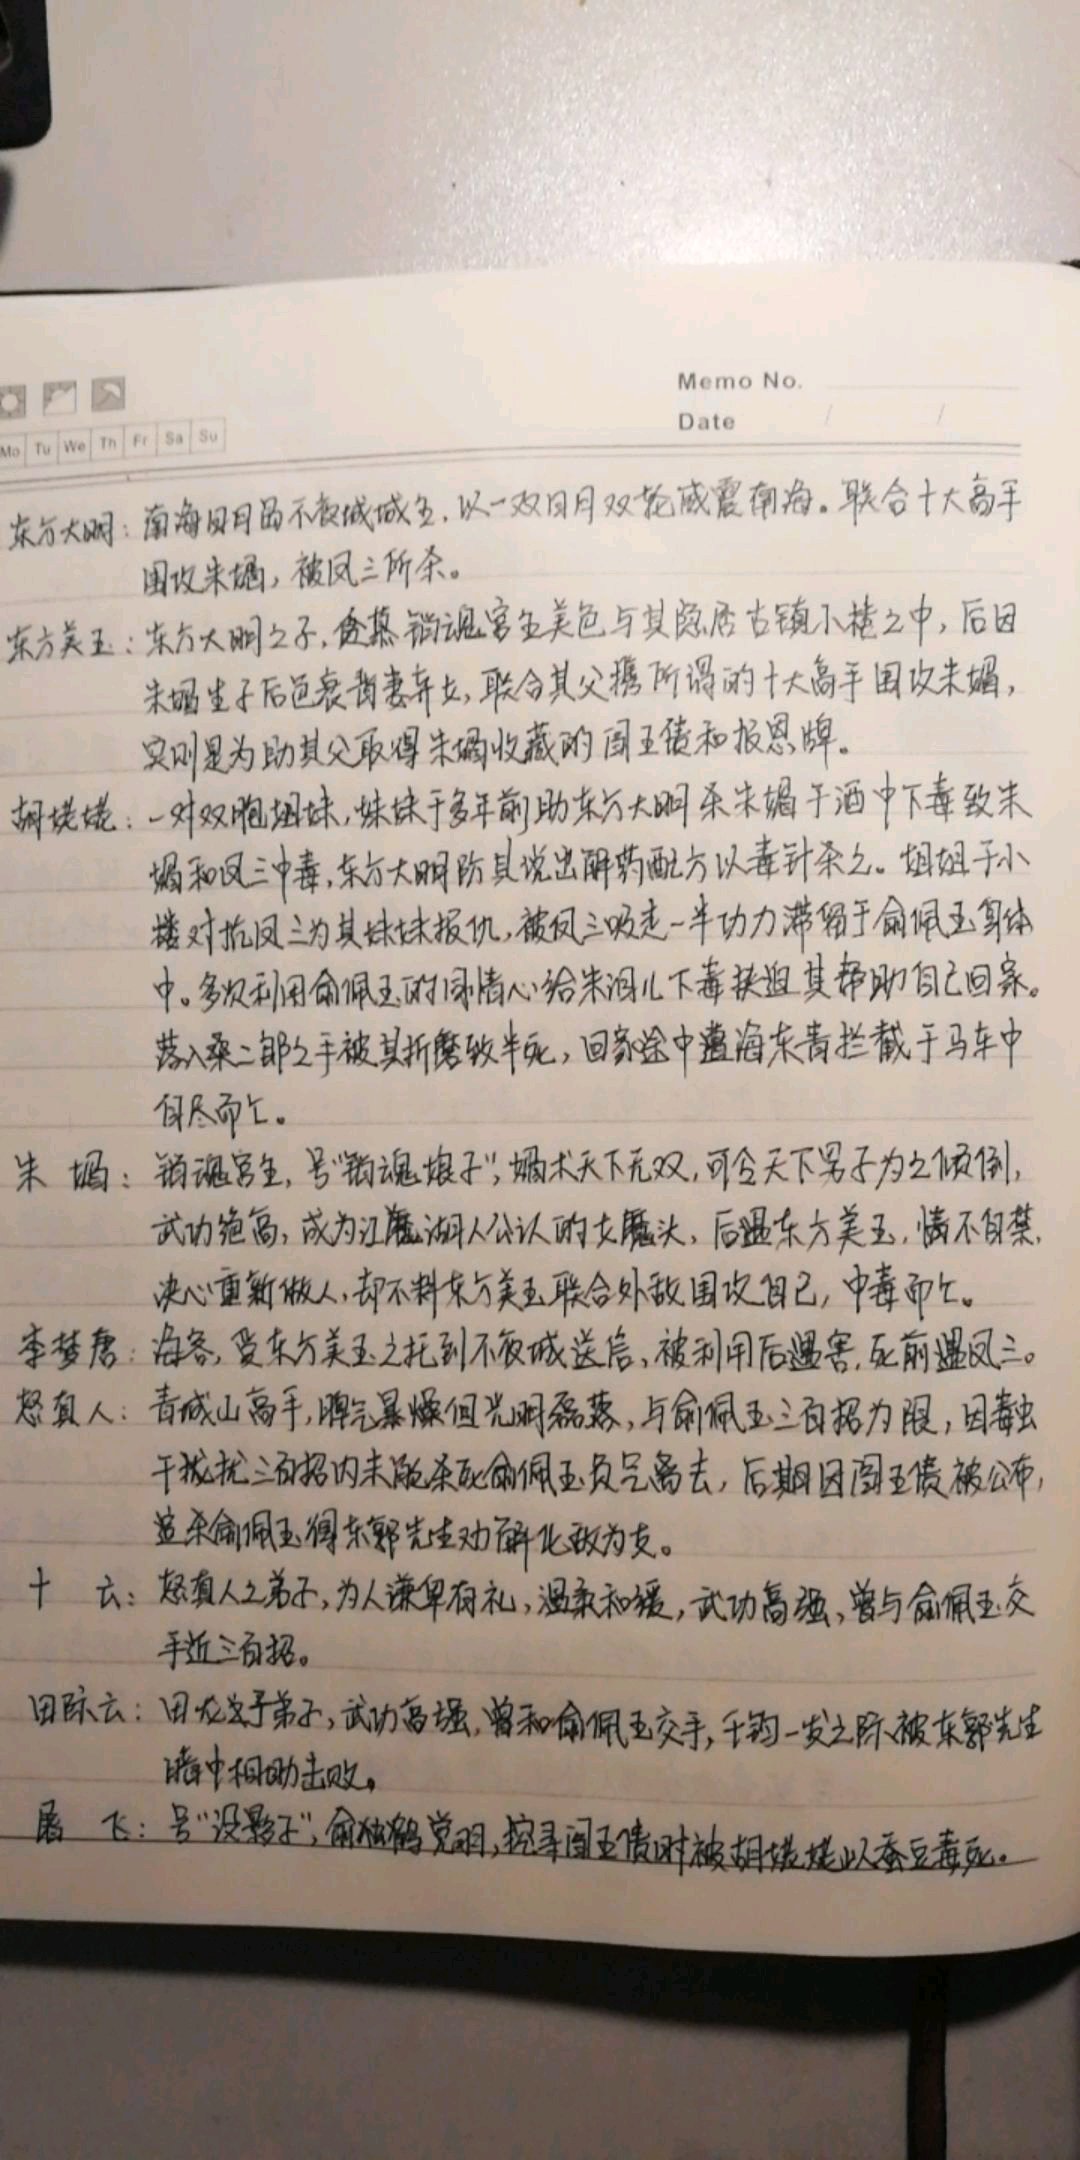 Memo No.
Date / /
Mo Tu We Th Fr Sa Su
东方大明：南海日月岛不夜城城主，以一双日月双轮威震南海。联合十大高手
围攻朱媚，被凤三所杀。
东方美玉：东方大明之子，贪慕销魂宫主美色与其隐居古镇小楼之中，后因
朱媚生子后色衰背妻弃女，联合其父携所谓的十大高手围攻朱媚，
实则是为助其父取得朱媚收藏的阎王债和报恩牌。
胡姥姥：一对双胞姐妹，妹妹于多年前助东方大明杀朱媚于酒中下毒致朱
媚和凤三中毒，东方大明防其说出解药配方以毒针杀之。姐姐于小
楼对抗凤三为其妹妹报仇，被凤三吸走一半功力滞留于俞佩玉身体
中。多次利用俞佩玉的同情心给朱泪儿下毒挟迫其帮助自己回家。
落入桑二郎之手被其折磨致半死，回家途中遭海东青拦截于马车中
自尽而亡。
朱媚：销魂宫主，号“销魂娘子”，媚术天下无双，可令天下男子为之倾倒，
武功绝高，成为江湖人公认的女魔头，后遇东方美玉，情不自禁，
决心重新做人，却不料东方美玉联合外敌围攻自己，中毒而亡。
李梦唐：海客，受东方美玉之托到不夜城送信，被利用后遇害，死前遇凤三。
怒真人：青城山高手，脾气暴燥但光明磊落，与俞佩玉三百招为限，因毒虫
干扰三百招内未能杀死俞佩玉负气离去，后期因阎王债被公布，
追杀俞佩玉得东郭先生劝解化敌为友。
十云：怒真人之弟子，为人谦卑有礼，温柔和缓，武功高强，曾与俞佩玉交
手近三百招。
田际云：田龙子弟子，武功高强，曾和俞佩玉交手，千钧一发之际被东郭先生
暗中相助击败。
屠飞：号“没影子”，俞独鹤党羽，挖寻阎王债时被胡姥姥以蚕豆毒死。